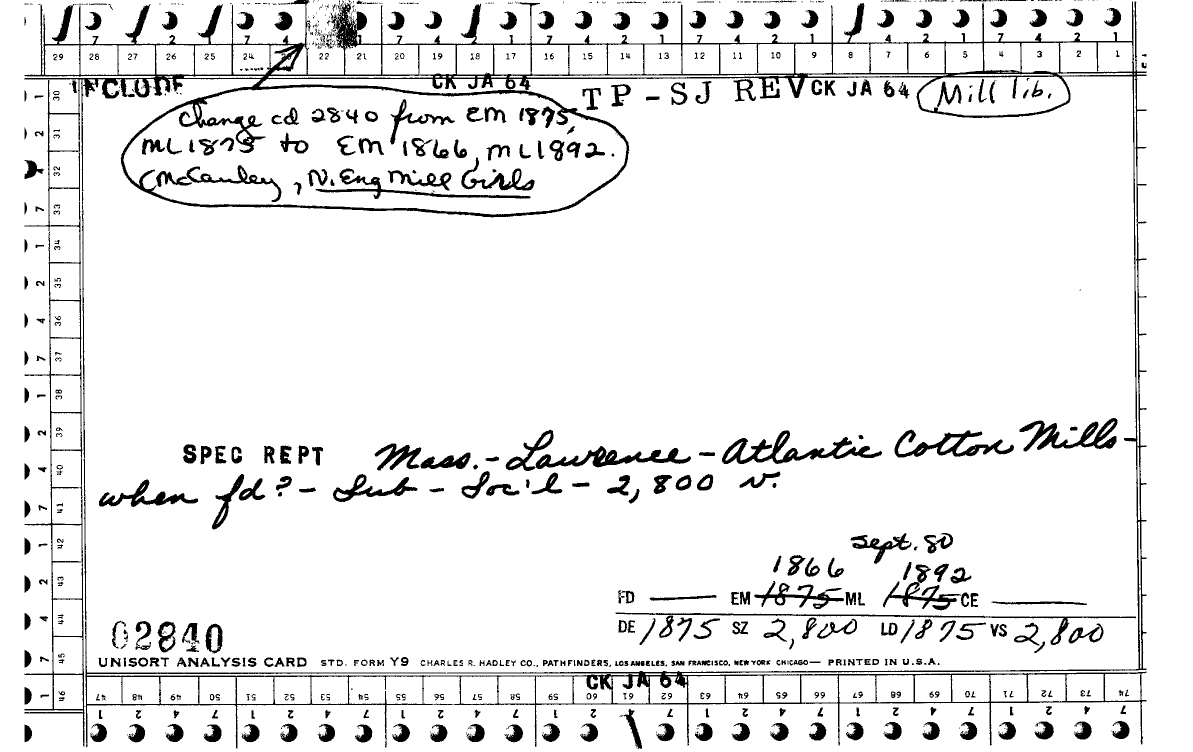 29 28 27 26 25 24 22 21 20 19 18 17 16 15 14 13 12 11 10 9 8 7 6 5 4 3 2 1
INCLUDE CK JA 64 TP-SJ REV CK JA 64 Mill lib.
Change cd 2840 from EM 1875,
ML 1875 to EM 1866, ML 1892.
(McCauley, N. Eng Mill Girls
SPEC REPT Mass. - Lawrence - Atlantic Cotton Mills -
when fd? - Sub - Soc'l - 2,800 v.
Sept. 80
1866 1892
FD EM 1875 ML 1875 CE
DE 1875 SZ 2,800 LD 1875 VS 2,800
02840
UNISORT ANALYSIS CARD STD. FORM Y9 CHARLES R. HADLEY CO., PATHFINDERS, LOS ANGELES, SAN FRANCISCO, NEW YORK CHICAGO— PRINTED IN U.S.A.
CK JA 64
47 48 49 50 51 52 53 54 55 56 57 58 59 60 61 62 63 64 65 66 67 68 69 70 71 72 73 74